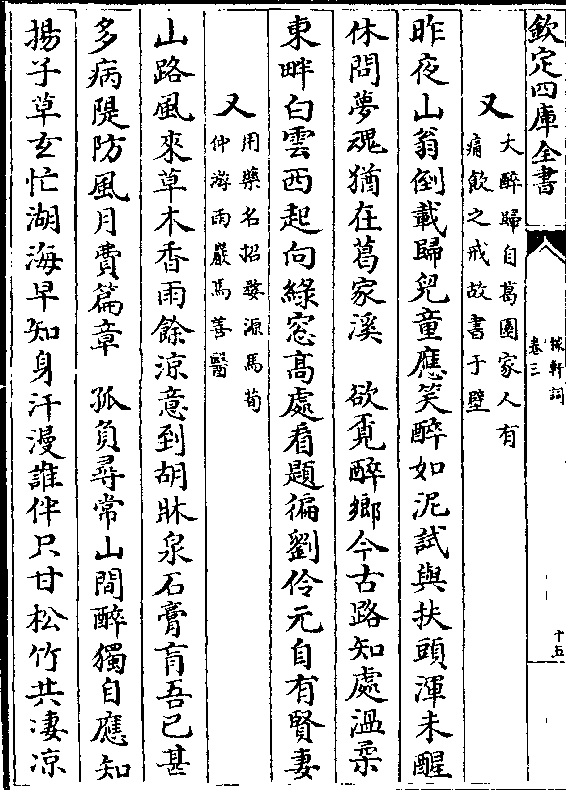 欽定四庫全書
稼軒詞
卷三
十五
又
大醉歸自葛園家人有
痛飲之戒故書于壁
昨夜山翁倒載歸兒童應笑醉如泥試與扶頭渾未醒
休問夢魂猶在葛家溪　欲覓醉鄉今古路知處溫柔
東畔白雲西起向綠窓髙處看題徧劉伶元自有賢妻
又
用藥名招婺源馬荀
仲游雨嚴馬善醫
山路風來草木香雨餘涼意到胡牀泉石膏肓吾已甚
多病隄防風月費篇章　孤負尋常山間醉獨自應知
揚子草玄忙湖海早知身汗漫誰伴只甘松竹共凄凉